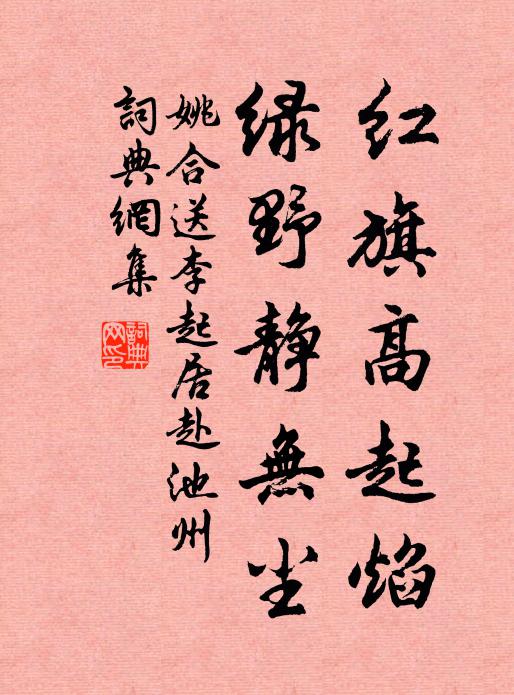 红旗高起焰
绿野静無尘
姚合送李起居赴池州
詞典網集
詞典网印